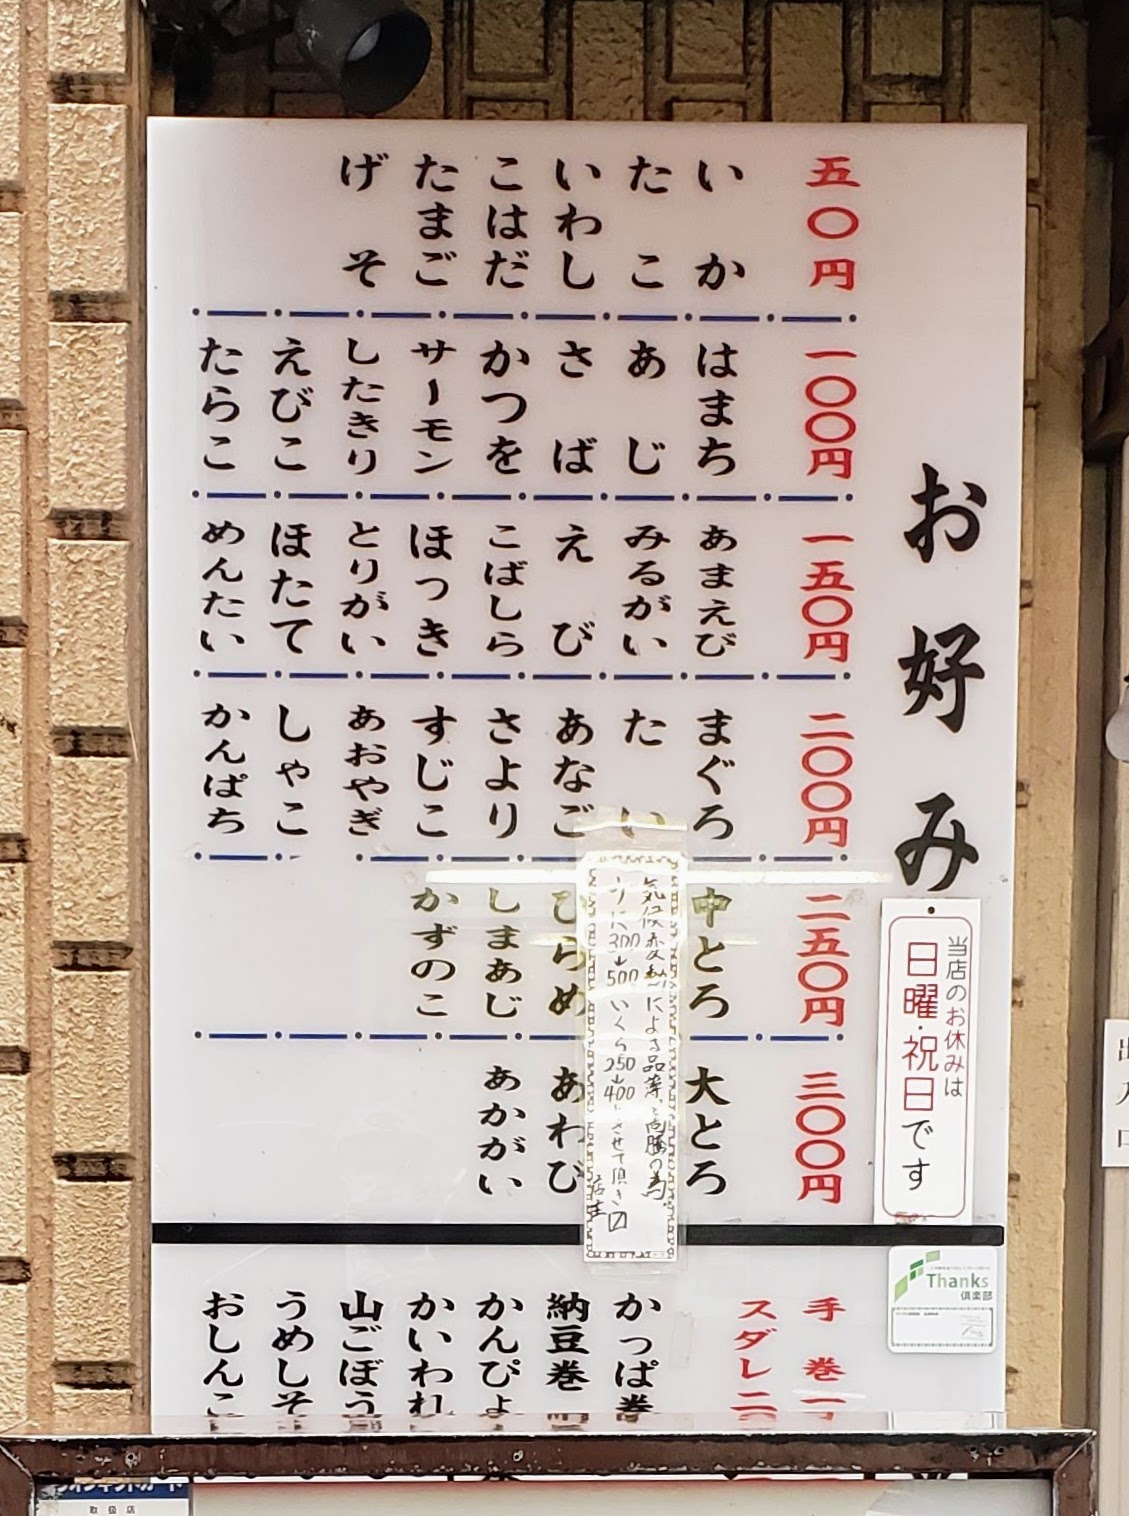 お好み
五〇円
いか
たこ
いわし
こはだ
たまご
げそ
一〇〇円
はまち
あじ
さば
かつを
サーモン
したきり
えびこ
たらこ
一五〇円
あまえび
みるがい
えび
こばしら
ほっき
とりがい
ほたて
めんたい
二〇〇円
まぐろ
たい
あなご
さより
すじこ
あおやぎ
しゃこ
かんぱち
二五〇円
中とろ
ひらめ
しまあじ
かずのこ
三〇〇円
大とろ
あわび
あかがい
気候変動による品薄と高騰の為
うに300→500 いくら250→400 とさせて頂き〼
店主
当店のお休みは
日曜・祝日です
Thanks
倶楽部
手巻一
スダレ二
かっぱ巻
納豆巻
かんぴょ
かいわれ
山ごぼう
うめしそ
おしんこ
取扱店
出入口